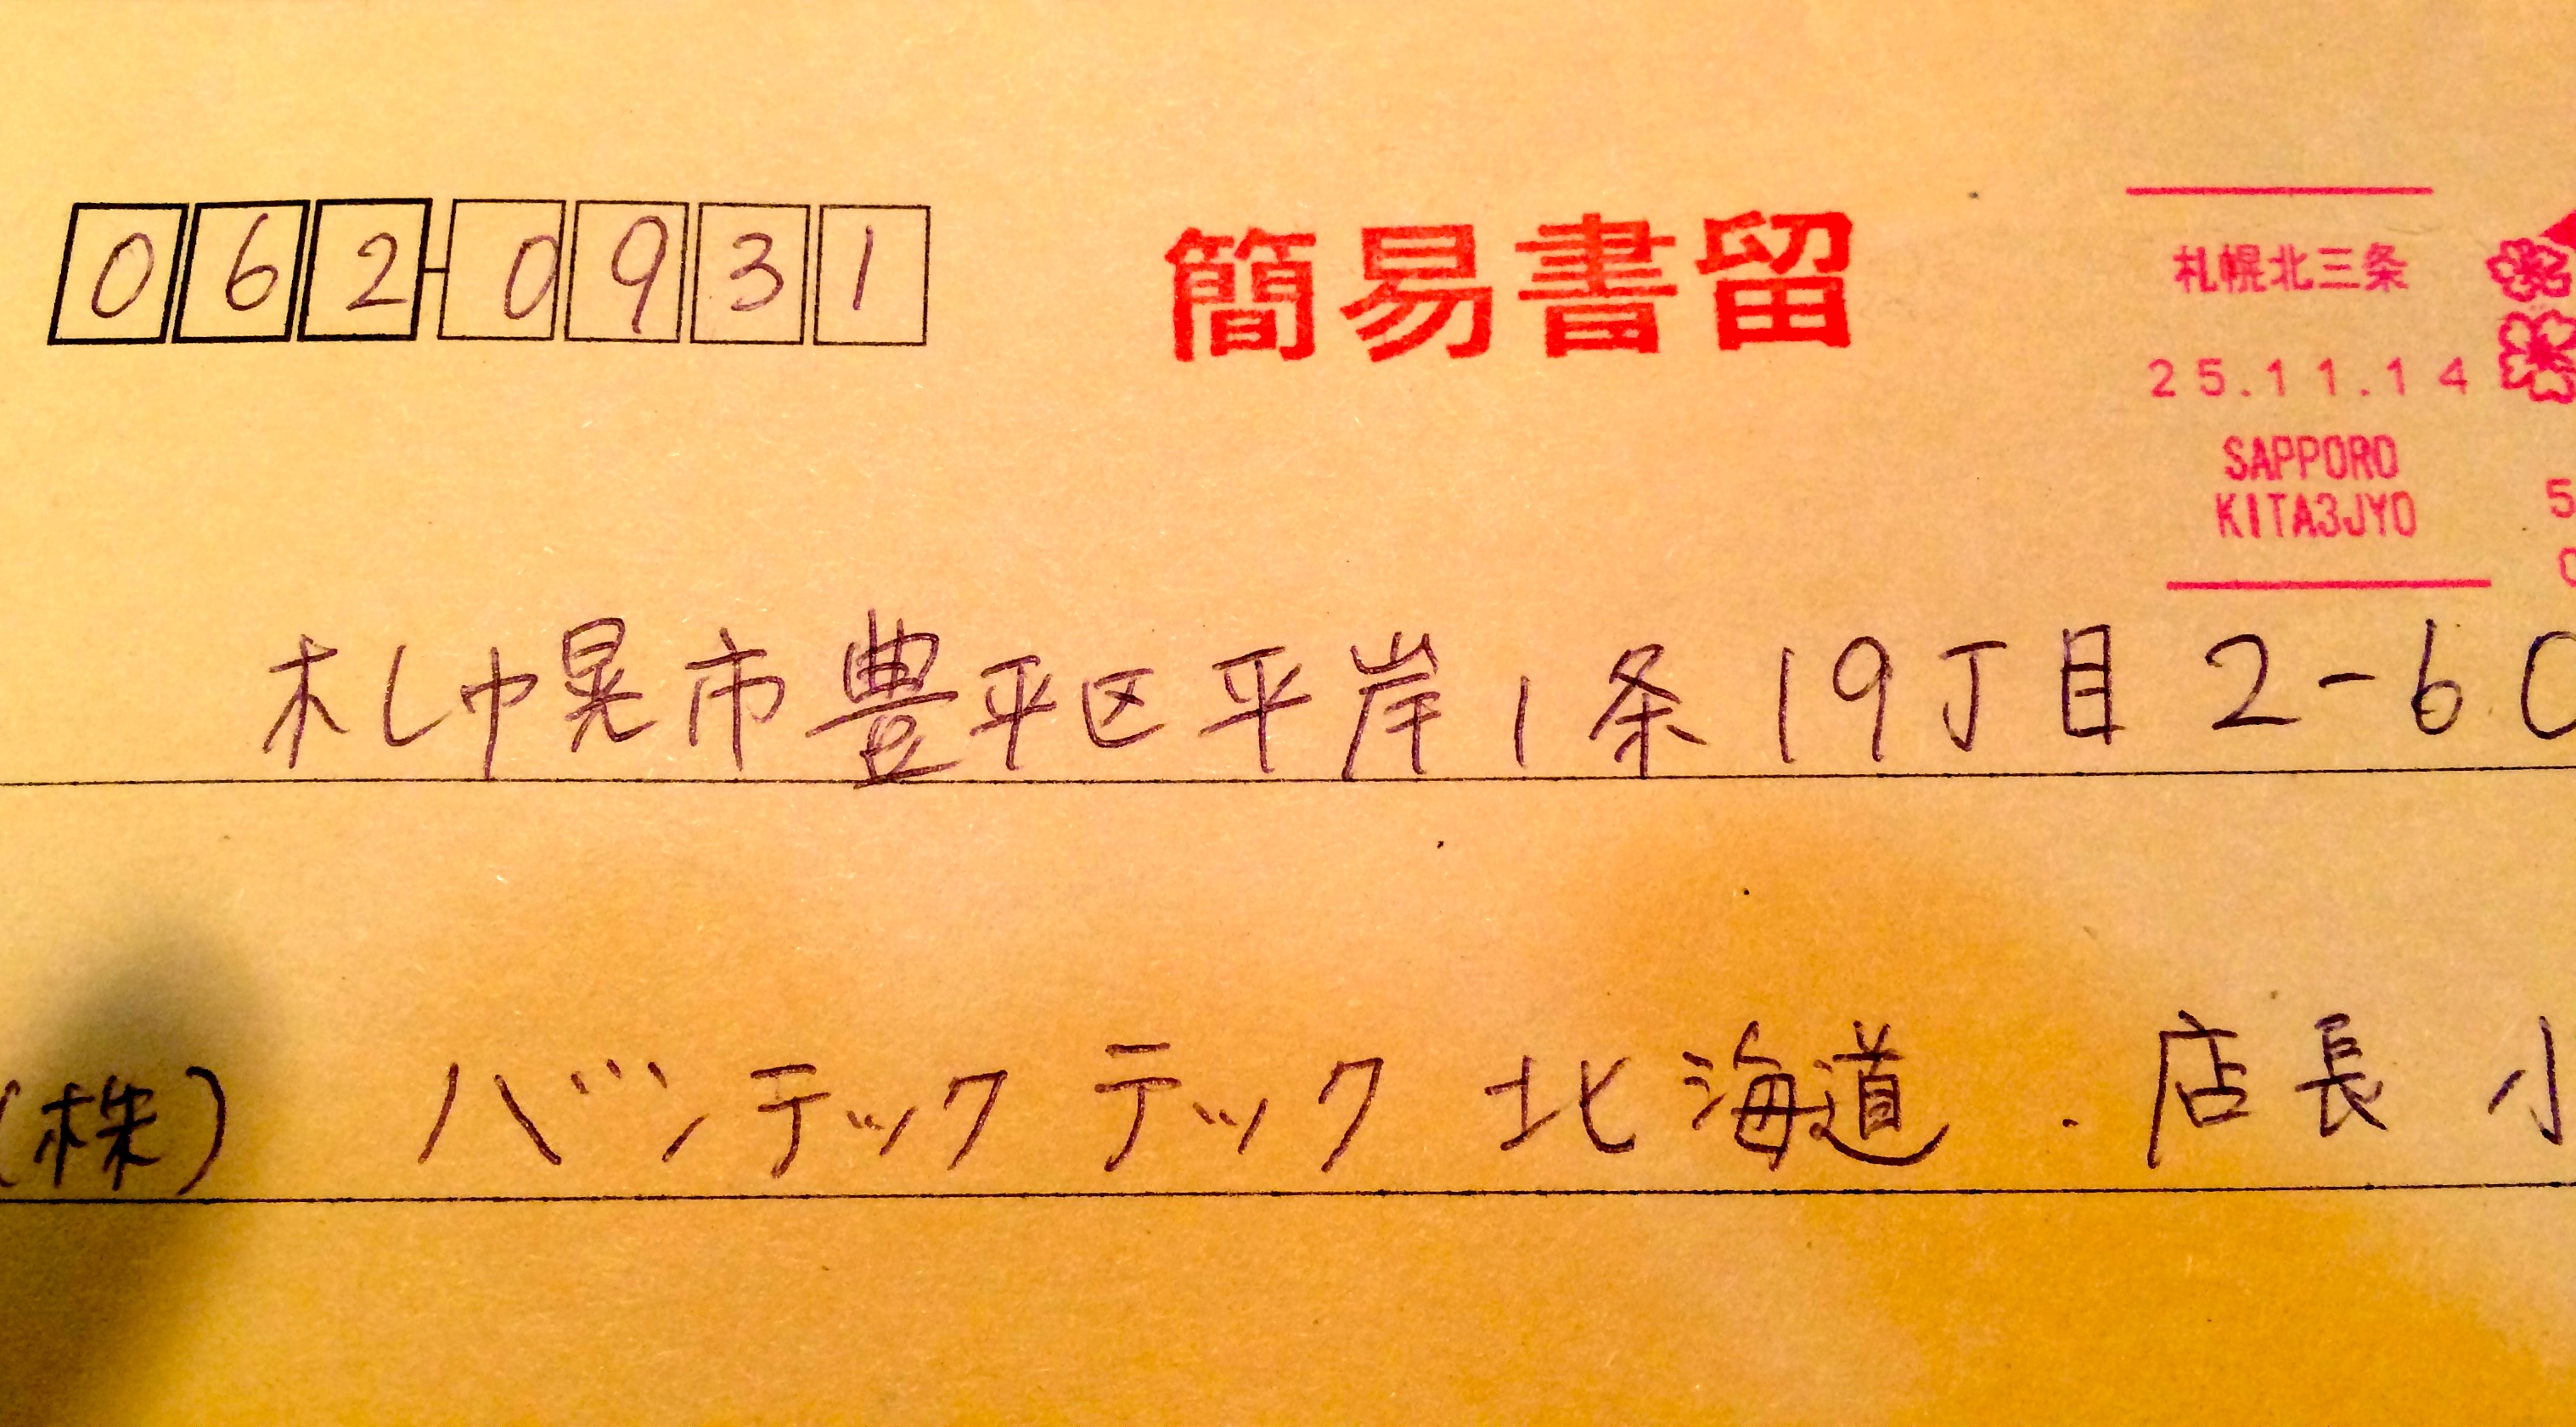 062-0931
簡易書留
札幌北三条
25.11.14
SAPPORO
KITA3JYO
札幌市豊平区平岸1条19丁目2-60
(株) バンテックテック北海道.店長 小